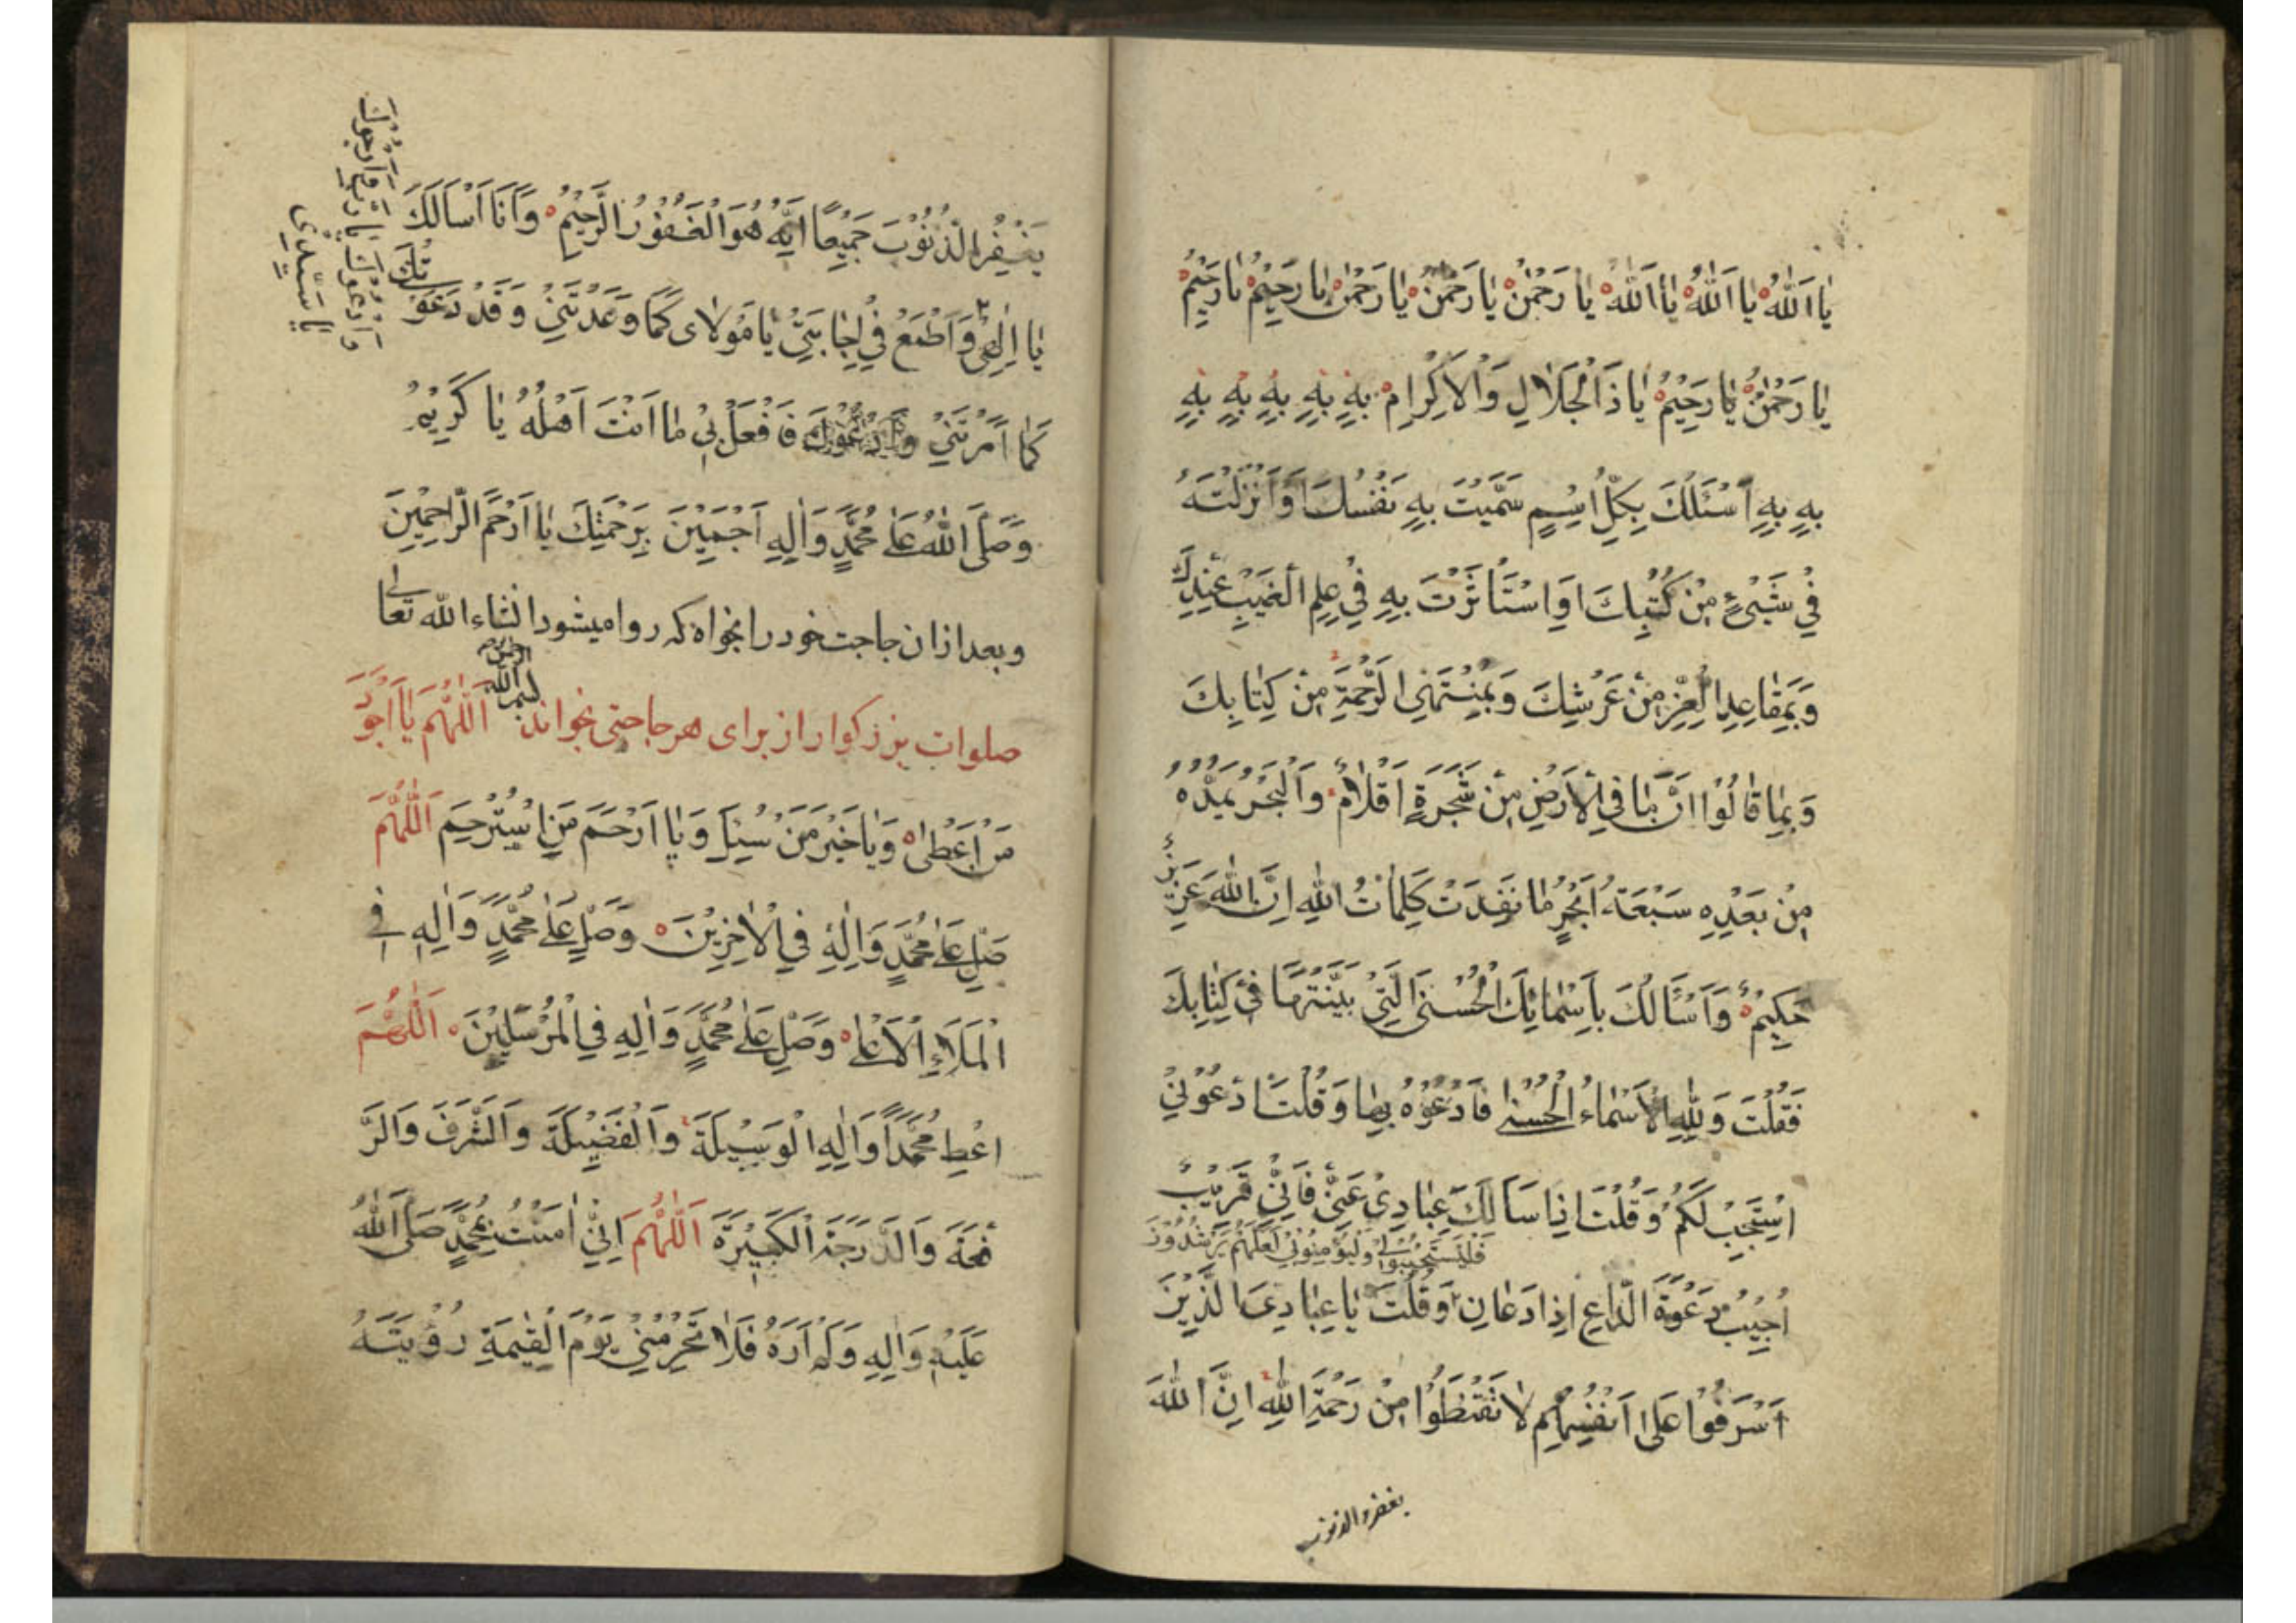 يا اَللّٰهُ يا اَللّٰهُ يا اَللّٰهُ يا رَحْمٰنُ يا رَحْمٰنُ يا رَحْمٰنُ يا رَحِيْمُ يا رَحِيْمُ
يا رَحْمٰنُ يا رَحِيْمُ يا ذَا الْجَلالِ وَالْاِكْرامِ بِهِ بِهِ بِهِ بِهِ بِهِ
بِهِ بِهِ اَسْئَلُكَ بِكُلِّ اسْمٍ سَمَّيْتَ بِهِ نَفْسَكَ اَوْ اَنْزَلْتَهُ
فِيْ شَيْءٍ مِنْ كُتُبِكَ اَوِ اسْتَأْثَرْتَ بِهِ فِيْ عِلْمِ الْغَيْبِ عِنْدَكَ
وَبِمَقاعِدِ الْعِزِّ مِنْ عَرْشِكَ وَبِمُنْتَهَى الرَّحْمَةِ مِنْ كِتابِكَ
وَبِما قالُوْا اَنَّ ما فِي الْاَرْضِ مِنْ شَجَرَةٍ اَقْلامٌ وَالْبَحْرُ يَمُدُّهُ
مِنْ بَعْدِهِ سَبْعَةُ اَبْحُرٍ ما نَفِدَتْ كَلِماتُ اللّٰهِ اِنَّ اللّٰهَ عَزِيْزٌ
حَكِيْمٌ وَاَسْاَلُكَ بِاَسْمائِكَ الْحُسْنَى الَّتِيْ بَيَّنْتَها فِيْ كِتابِكَ
فَقُلْتَ وَلِلّٰهِ الْاَسْماءُ الْحُسْنى فَادْعُوْهُ بِها وَقُلْتَ ادْعُوْنِيْ
اَسْتَجِبْ لَكُمْ وَقُلْتَ اِذا سَاَلَكَ عِبادِيْ عَنِّيْ فَاِنِّيْ قَرِيْبٌ
فَلْيَسْتَجِيْبُوا لِيْ وَلْيُؤْمِنُوْا بِيْ لَعَلَّهُمْ يَرْشُدُوْنَ
اُجِيْبُ دَعْوَةَ الدّاعِ اِذا دَعانِ وَقُلْتَ يا عِبادِيَ الَّذِيْنَ
اَسْرَفُوْا عَلى اَنْفُسِهِمْ لا تَقْنَطُوْا مِنْ رَحْمَةِ اللّٰهِ اِنَّ اللّٰهَ
يغفر الذنوب
يَغْفِرُ الذُّنُوْبَ جَمِيْعًا اِنَّهُ هُوَ الْغَفُوْرُ الرَّحِيْمُ وَاَنَا اَسْاَلُكَ
يا اِلٰهِيْ وَاَطْمَعُ فِيْ اِجابَتِيْ يا مَوْلاى كَما وَعَدْتَنِيْ وَقَدْ دَعَوْتُكَ
كَما اَمَرْتَنِيْ فَافْعَلْ بِيْ ما اَنْتَ اَهْلُهُ يا كَرِيْمُ
وَصَلَّى اللّٰهُ عَلى مُحَمَّدٍ وَاٰلِهِ اَجْمَعِيْنَ بِرَحْمَتِكَ يا اَرْحَمَ الرّاحِمِيْنَ
وَاَدْعُوْكَ يا رَبِّ وَاَرْجُوْكَ
يا سَيِّدِيْ
وبعد ازان حاجت خود را بخواه كه روا ميشود انشاء الله تعالى
صلوات بزركوار از براى هر حاجتى بخواند بسم الله الرحمن اَللّٰهُمَّ يا اَجْوَدَ
مَنْ اَعْطى وَيا خَيْرَ مَنْ سُئِلَ وَيا اَرْحَمَ مَنِ اسْتُرْحِمَ اَللّٰهُمَّ
صَلِّ عَلى مُحَمَّدٍ وَاٰلِهِ فِي الْاٰخِرِيْنَ وَصَلِّ عَلى مُحَمَّدٍ وَاٰلِهِ فِي
الْمَلَاءِ الْاَعْلى وَصَلِّ عَلى مُحَمَّدٍ وَاٰلِهِ فِي الْمُرْسَلِيْنَ اَللّٰهُمَّ
اعْطِ مُحَمَّدًا وَاٰلِهِ الْوَسِيْلَةَ وَالْفَضِيْلَةَ وَالشَّرَفَ وَالرِّ
فْعَةَ وَالدَّرَجَةَ الْكَبِيْرَةَ اَللّٰهُمَّ اِنِّيْ اٰمَنْتُ بِمُحَمَّدٍ صَلَّى اللّٰهُ
عَلَيْهِ وَاٰلِهِ وَلَمْ اَرَهُ فَلا تَحْرِمْنِيْ يَوْمَ الْقِيٰمَةِ رُؤْيَتَهُ